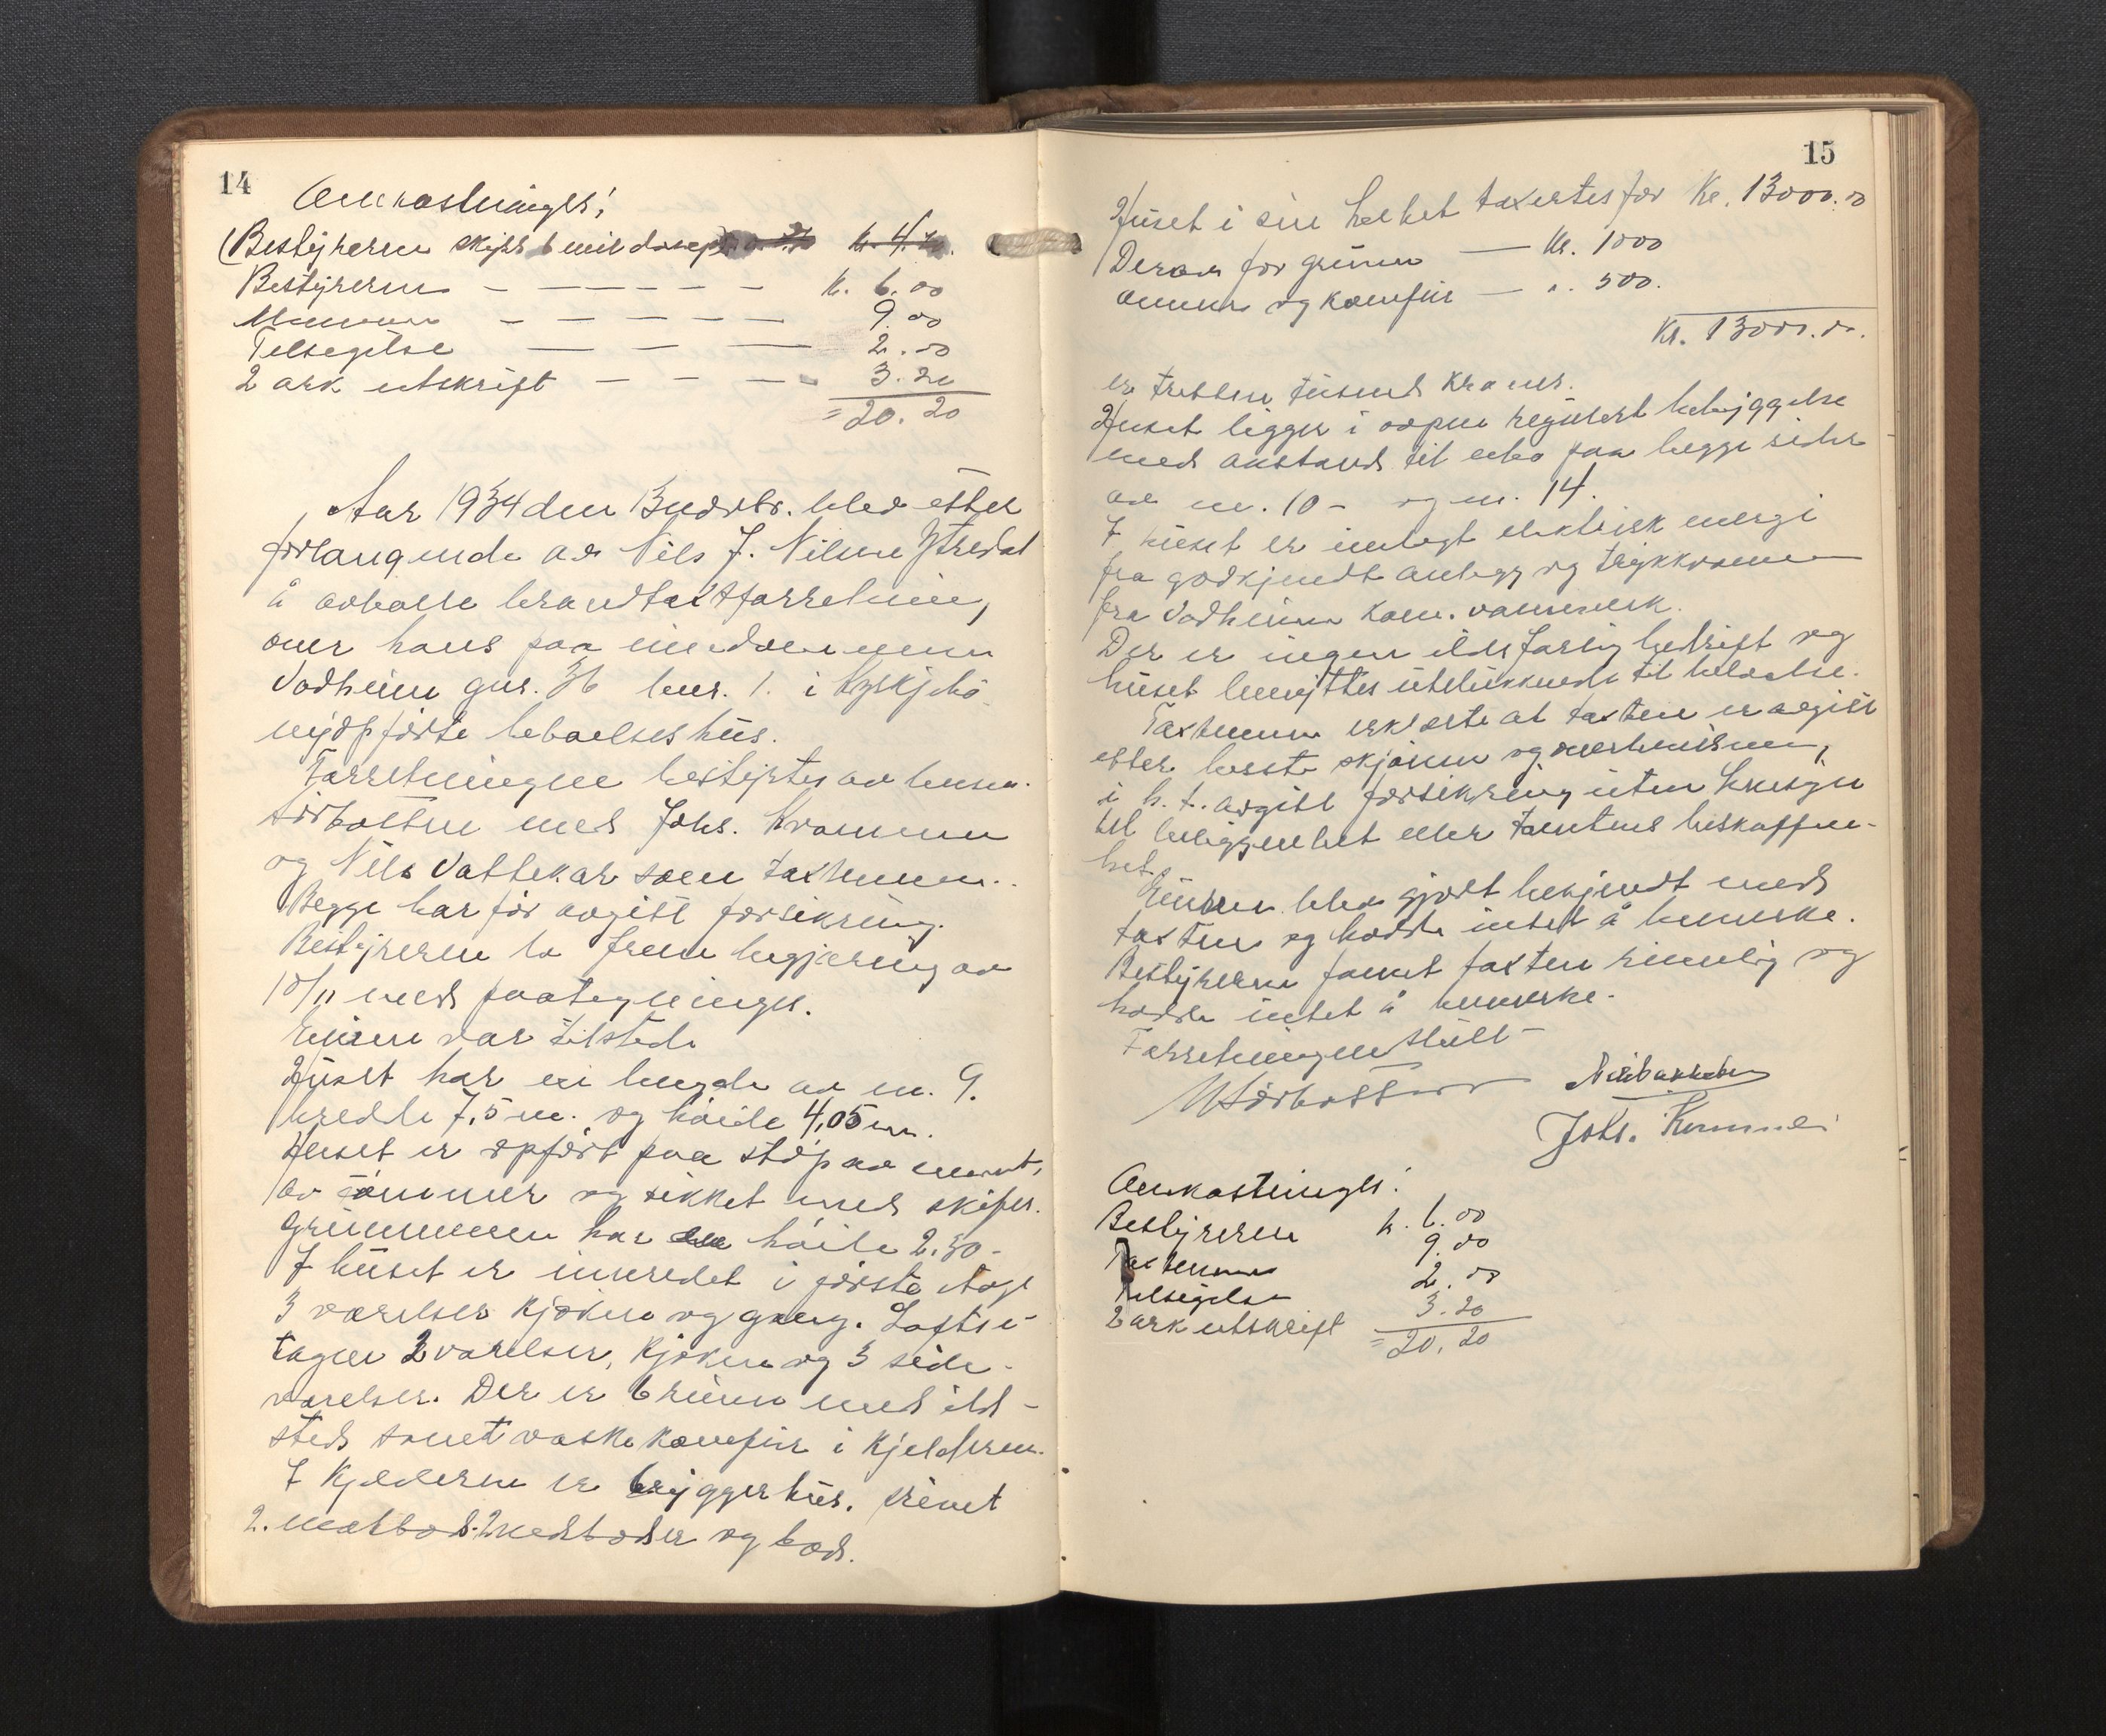 14
Omkostninger:
(Bestyreren skyss 6 mil k. 4.
Bestyreren — — — — — — k. 6.00
— — — — — 9.00
Tilsigelse — — — 2.00
2 ark utskrift — — — — 3.20
= 20.20
Aar 1934 den 13 novbr. blev efter
forlangende av Nils J. Nilsen Ytredal
å avholde brandtaxtforretning
over hans paa eiendommen
Vadheim gnr. 36 bnr. 1. i Kyrkjebø
nyopførte beboelseshus.
Forretningen bestyrtes av lensm.
Sørbotten med Johs.
og Nils Vattekar som taxtmenn.
Begge har før avgitt forsikring.
Bestyreren la frem begjæring av
10/11 med paategninger.
Eieren var tilstede
Huset har en lengde av m. 9.
bredde 7,5 m. og høide 4,05 m.
Huset er opført paa støp av sement,
av tømmer og tekket med skifer.
Grunnmuren har en høide 2.30 -
I huset er innredet i første etage
3 værelser kjøken og gang. Loftse-
tagen 2 værelser, kjøken og 3 side-
værelser. Der er 6 rum med ild-
sted samt vaskekomfur i kjelderen.
I kjelderen er bryggerhus, grue samt
2. matbod. 2 vedboder og bod.
15
Huset i sin helhet taxertes for Kr. 13000.00
Derav for grunn — Kr. 1000
ovnner og komfur — ". 500.
Kr. 13000.00.
er tretten tusend kroner.
Huset ligger i aapen regulert bebyggelse
med avstand til nabo paa begge sider
av m. 10 - og m. 14.
I huset er innlagt elektrisk energi
fra godkjendt anlegg og trykkvann
fra Vadheim kom. vannverk.
Der er ingen ildsfarlig bedrift og
huset benyttes utelukkende til beboelse.
Taxtmenn erklærte at taxten er avgitt
efter beste skjønn og overbevisning,
i h. t. avgitt forsikring uten hensyn
til beliggenhet eller tomtens beskaffen-
het.
Eieren blev gjort bekjendt med
taxten og hadde intet å bemerke.
Bestyreren fannt taxten rimelig og
hadde intet å bemerke.
Forretningen slutt -
Sørbotten
Johs.
Omkostninger:
Bestyreren k. 6.00
Taxtmenn 9.00
Tilsigelse 2.00
2 ark utskrift 3.20
= 20.20